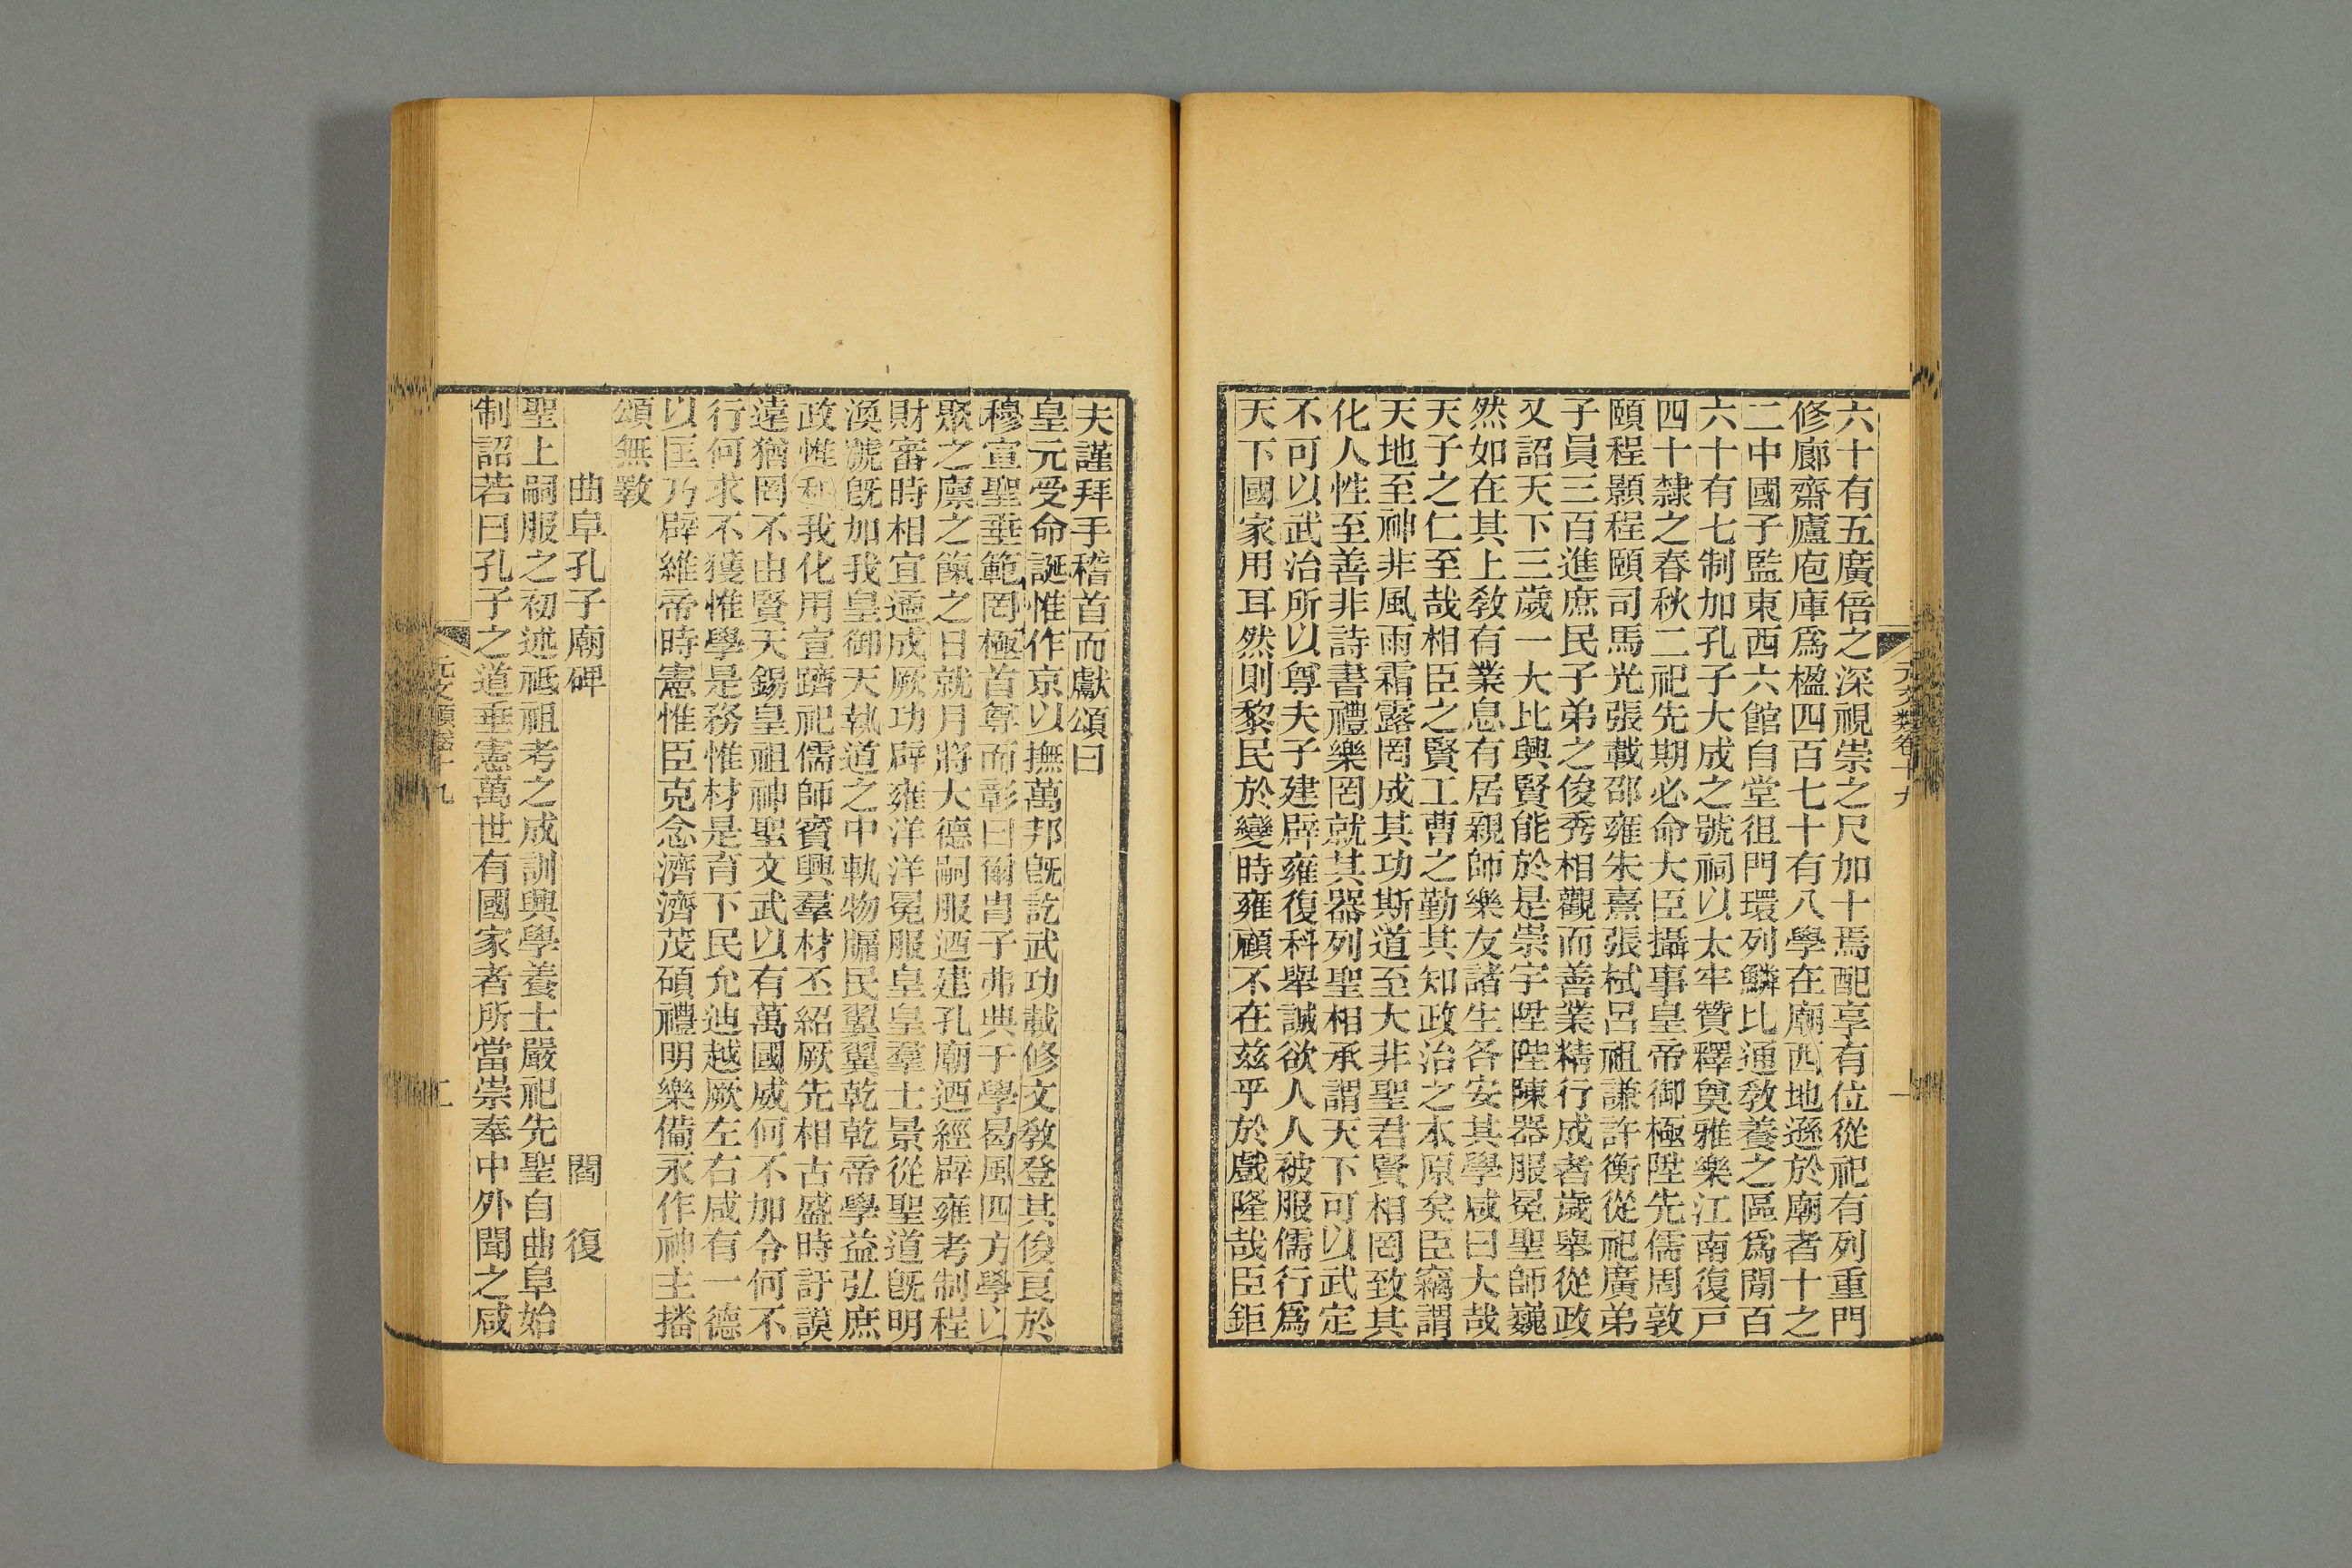 六十有五廣倍之深視崇之尺加十焉配享有位從祀有列重門
修廊齋廬庖庫爲楹四百七十有八學在廟西地遜於廟者十之
二中國子監東西六館自堂徂門環列鱗比通敎養之區爲閒百
六十有七制加孔子大成之號祠以太牢贊釋奠雅樂江南復戸
四十隸之春秋二祀先期必命大臣攝事皇帝御極陞先儒周敦
頤程顥程頤司馬光張載邵雍朱熹張栻呂祖謙許衡從祀廣弟
子員三百進庶民子弟之俊秀相觀而善業精行成者歲舉從政
又詔天下三歲一大比興賢能於是崇宇陞陛陳器服冕聖師巍
然如在其上敎有業息有居親師樂友諸生各安其學咸曰大哉
天子之仁至哉相臣之賢工曹之勤其知政治之本原矣臣竊謂
天地至神非風雨霜露罔成其功斯道至大非聖君賢相罔致其
化人性至善非詩書禮樂罔就其器列聖相承謂天下可以武定
不可以武治所以尊夫子建辟雍復科舉誠欲人人被服儒行爲
天下國家用耳然則黎民於變時雍顧不在玆乎於戲隆哉臣鉅
元文類卷十九
夫謹拜手稽首而獻頌曰
皇元受命誕惟作京以撫萬邦旣訖武功載修文敎登其俊良於
穆宣聖垂範罔極首尊而彰曰爾胄子弗典于學曷風四方學以
聚之廪之餼之日就月將大德嗣服迺建孔廟迺經辟雍考制程
財審時相宜遹成厥功辟雍洋洋冕服皇皇羣士景從聖道旣明
渙號旣加我皇御天執道之中軌物牖民翼翼乾乾帝學益弘庶
政惟和我化用宣躋祀儒師賓興羣材丕紹厥先相古盛時訏謨
遠猶罔不由賢天錫皇祖神聖文武以有萬國威何不加令何不
行何求不獲惟學是務惟材是育下民允迪越厥左右咸有一德
以匡乃辟維帝時憲惟臣克念濟濟茂碩禮明樂備永作神主播
頌無斁
曲阜孔子廟碑　閻復
聖上嗣服之初述祗祖考之成訓興學養士嚴祀先聖自曲阜始
制詔若曰孔子之道垂憲萬世有國家者所當崇奉中外聞之咸
元文類卷十九